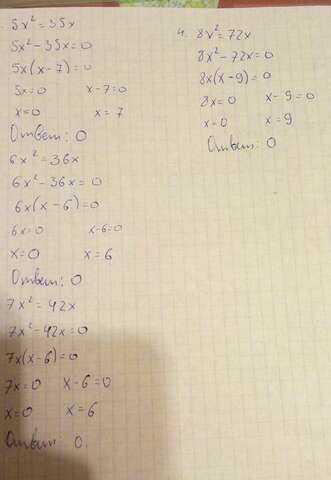 5x² = 35x
5x² - 35x = 0
5x(x - 7) = 0
5x = 0 x - 7 = 0
x = 0 x = 7
Ответ: 0
6x² = 36x
6x² - 36x = 0
6x(x - 6) = 0
6x = 0 x - 6 = 0
x = 0 x = 6
Ответ: 0
7x² = 42x
7x² - 42x = 0
7x(x - 6) = 0
7x = 0 x - 6 = 0
x = 0 x = 6
Ответ: 0.
4. 8x² = 72x
8x² - 72x = 0
8x(x - 9) = 0
8x = 0 x - 9 = 0
x = 0 x = 9
Ответ: 0